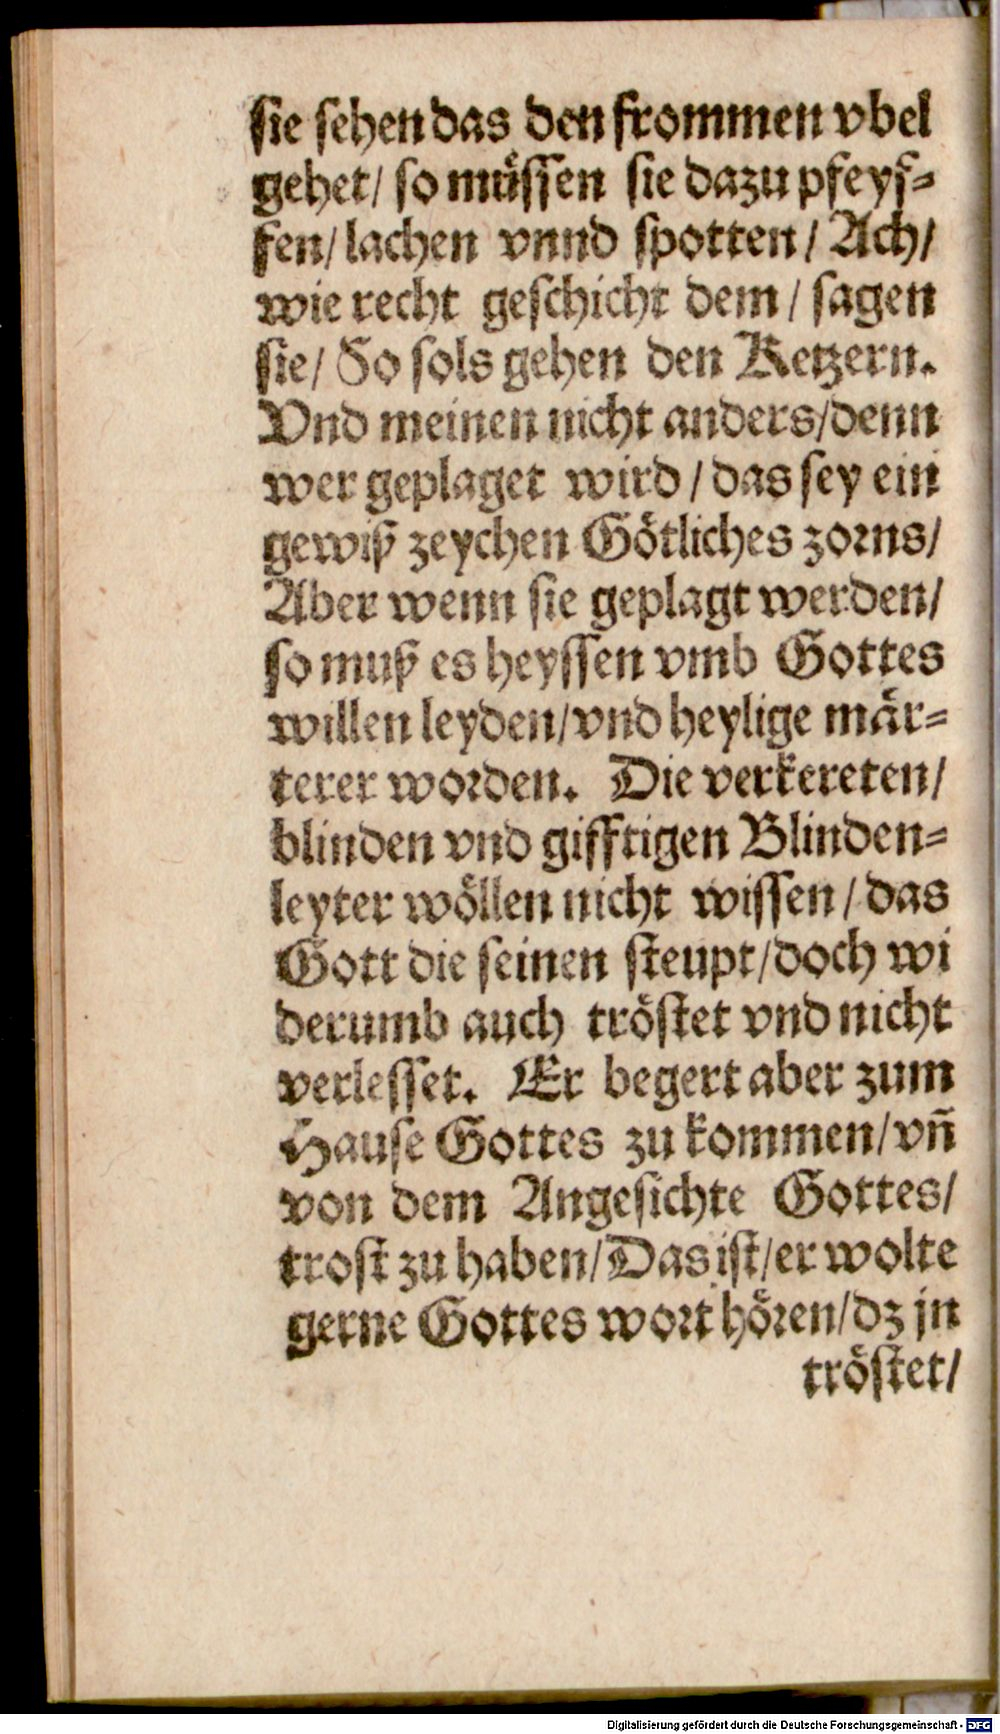 sie sehen das den frommen vbel
gehet/ so müssen sie dazu pfeyf-
fen/ lachen vnnd spotten/ Ach/
wie recht geschicht dem/ sagen
sie/ So sols gehen den Ketzern.
Vnd meinen nicht anders/denn
wer geplaget wird/ das sey ein
gewiß zeychen Götliches zorns/
Aber wenn sie geplagt werden/
so muß es heyssen vmb Gottes
willen leyden/vnd heylige mär-
terer worden. Die verkereten/
blinden vnd gifftigen Blinden-
leyter wöllen nicht wissen/ das
Gott die seinen steupt/doch wi
derumb auch tröstet vnd nicht
verlesset. Er begert aber zum
Hause Gottes zu kommen/vn̄
von dem Angesichte Gottes/
trost zu haben/Das ist/er wolte
gerne Gottes wort hören/dz jn
tröstet/
Digitalisierung gefördert durch die Deutsche Forschungsgemeinschaft - DFG